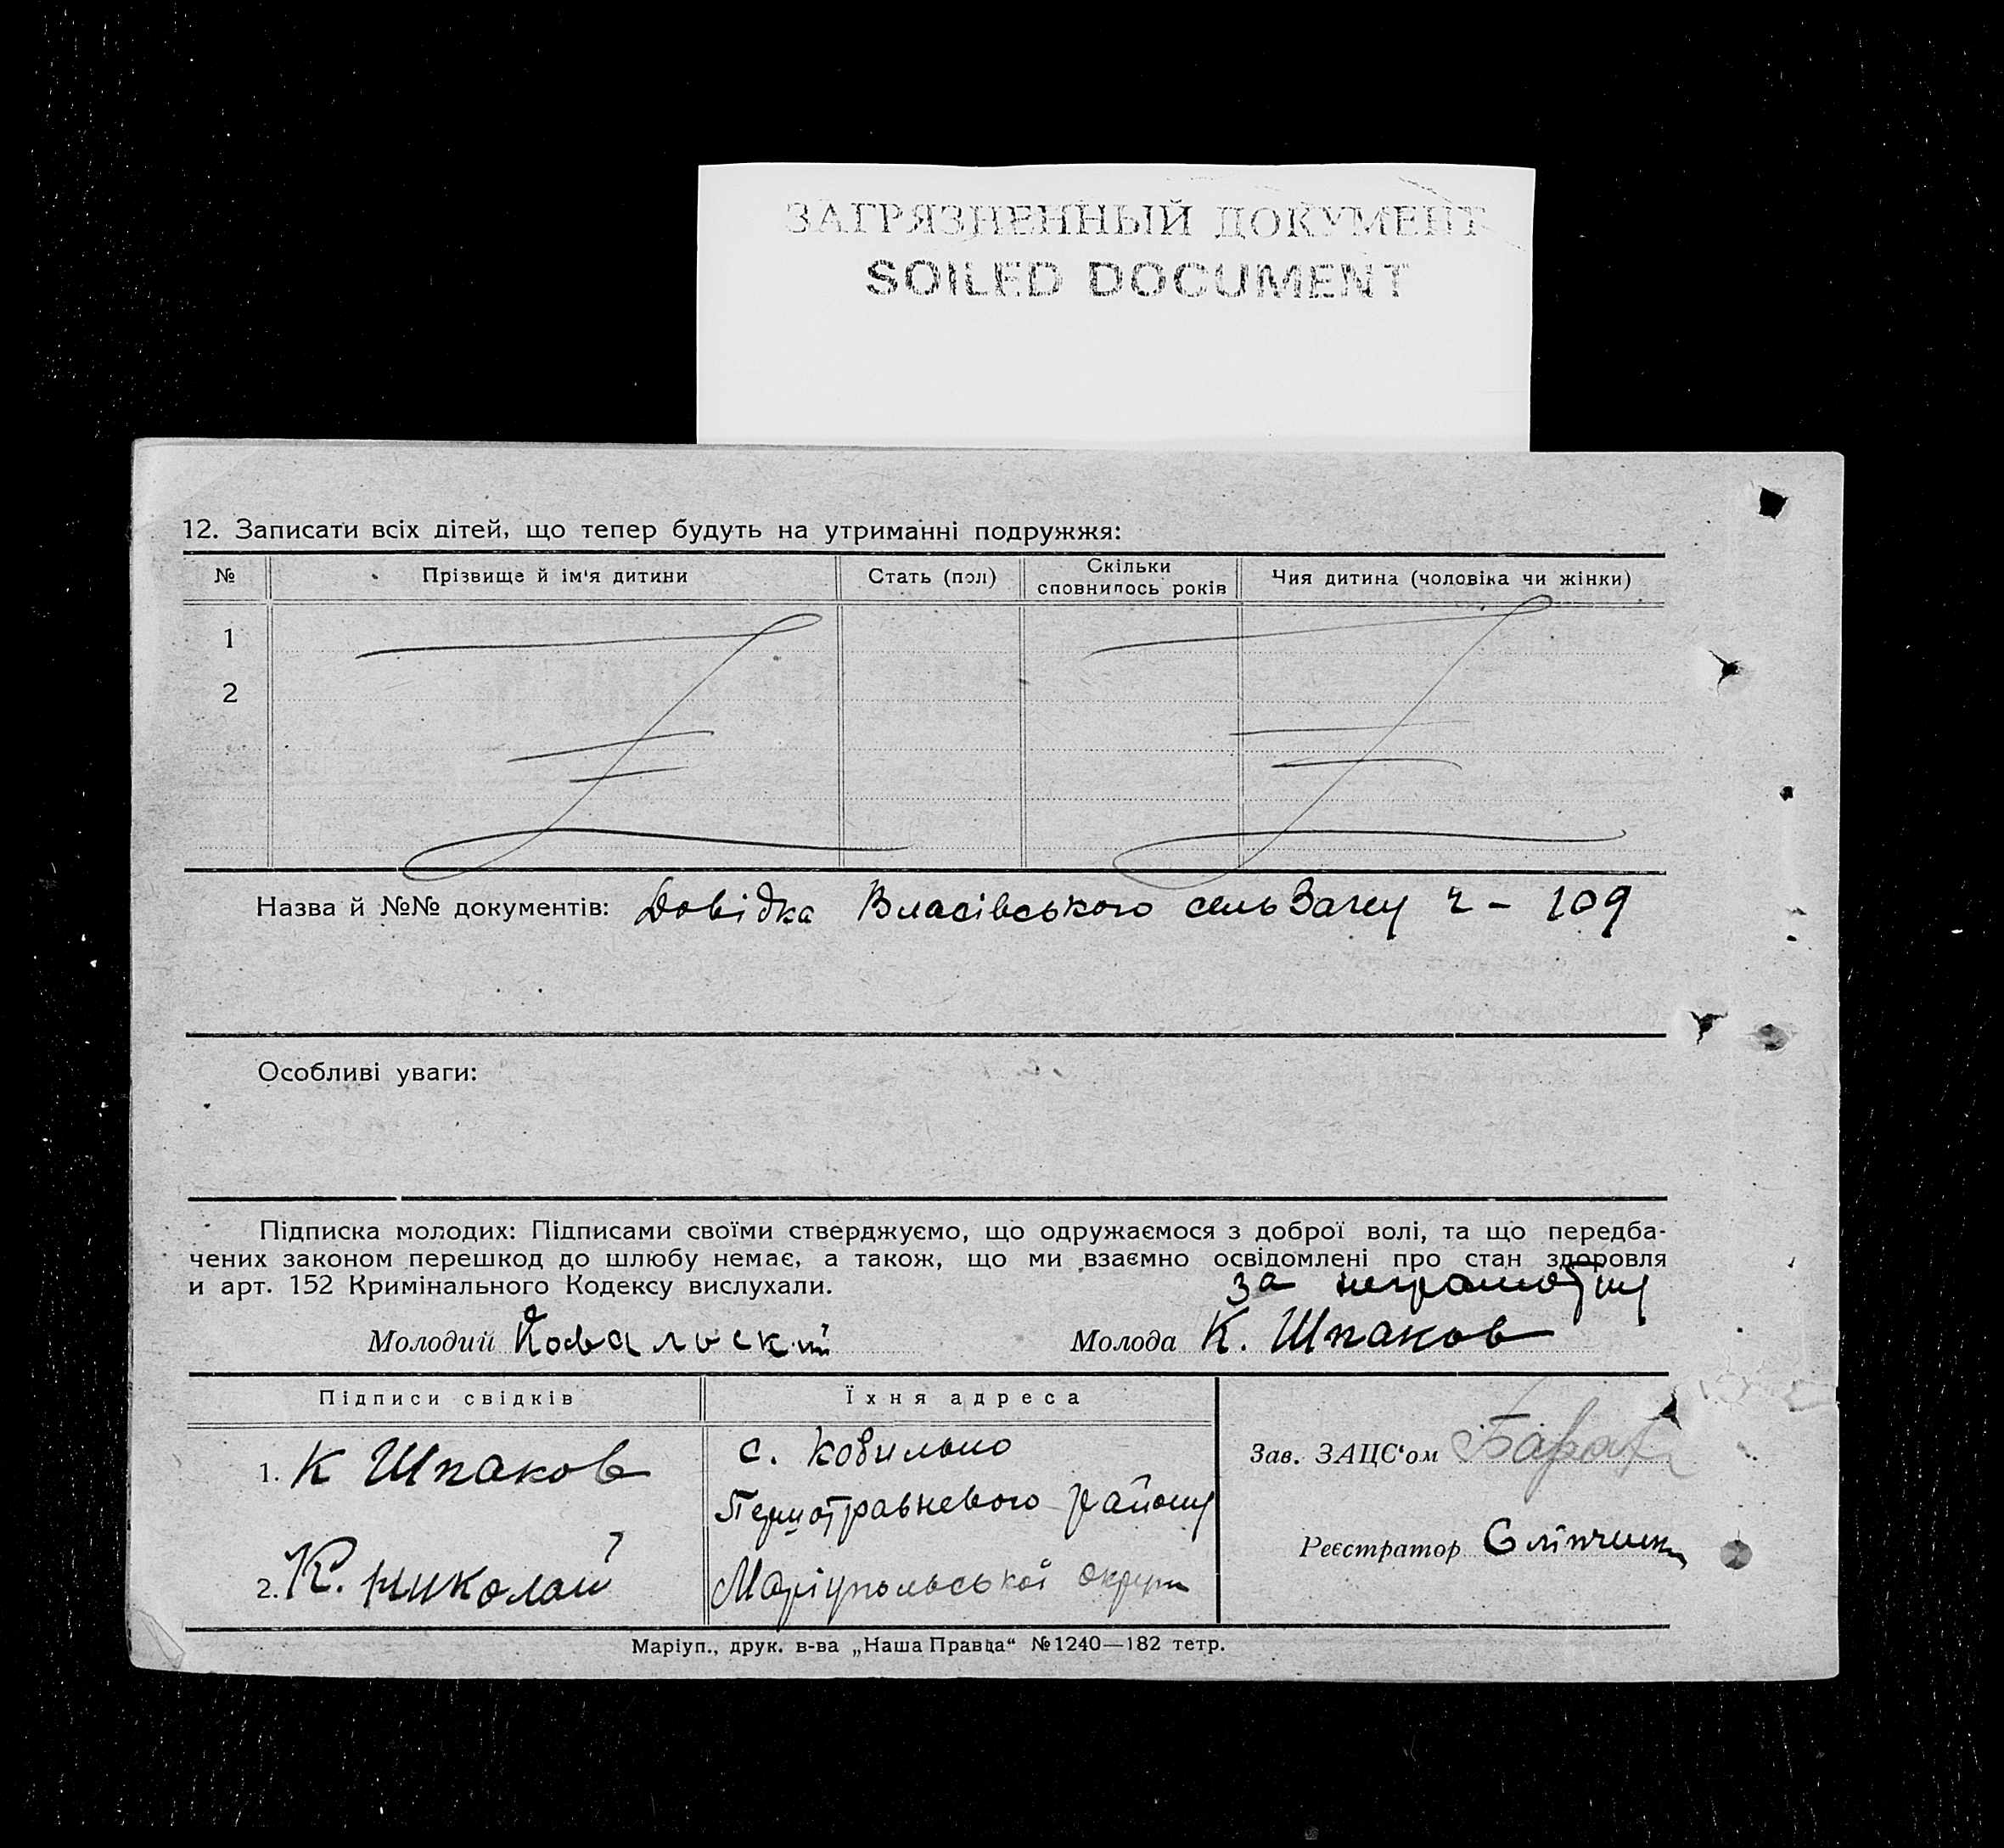 ЗАГРЯЗНЕННЫЙ ДОКУМЕНТ
SOILED DOCUMENT
12. Записати всіх дітей, що тепер будуть на утриманні подружжя:
№ Прізвище й ім'я дитини Стать (пол) Скільки сповнилось років Чия дитина (чоловіка чи жінки)
1
2
Назва й №№ документів: Довідка Власівського сельЗагсу ч – 109
Особливі уваги:
Підписка молодих: Підписами своїми стверджуємо, що одружаємося з доброї волі, та що передба-
чених законом перешкод до шлюбу немає, а також, що ми взаємно освідомлені про стан здоровля
и арт. 152 Кримінального Кодексу вислухали.
за неграмотну
Молодий Ковальский Молода К. Шпаков
Підписи свідків Їхня адреса
1. К Шпаков с. Ковильно Зав. ЗАЦС'ом
Першотравневого району
Реєстратор
2. К. Николай Маріупольської округи
Маріуп., друк. в-ва „Наша Правда“ №1240—182 тетр.